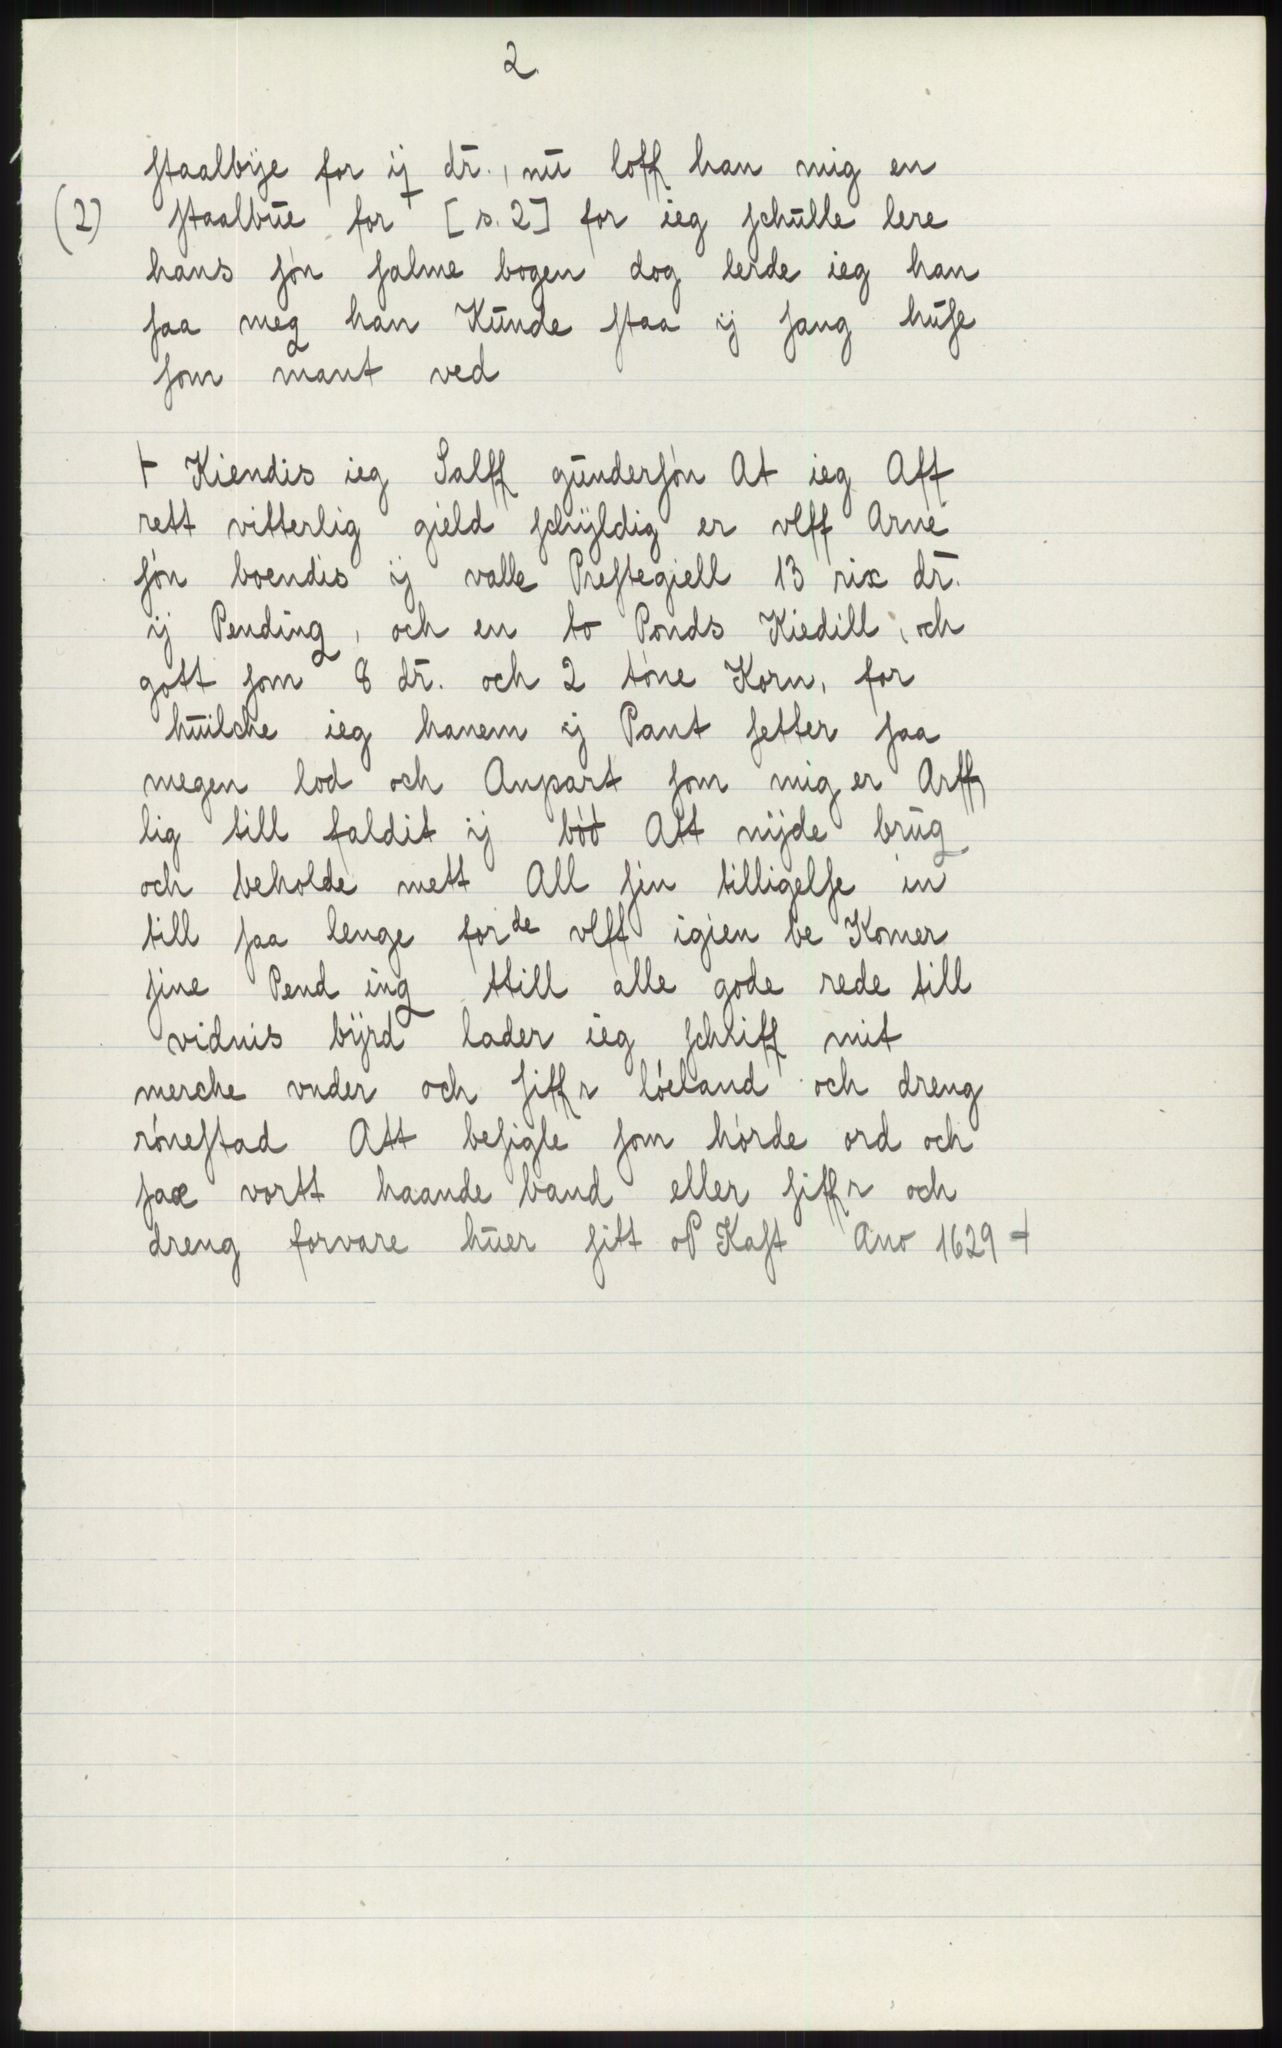 2
staalbÿe for ij dr̄., nū loff han mig en
(2) staalbūe for + [s. 2] for ieg schūlle lere
hans søn salme bogen dog lerde ieg han
saa meg han Kūnde staa ij sang hūse
som mant ved
+ Kiendis ieg Salff gūndersøn At ieg Aff
rett vitterlig gield schÿldig er vlff Arne
søn boendis ij valle Prestegiell 13 rix dr̄.
ij Pending, och en to Ponds Kiedill, och
gott som 8 dr̄. och 2 tóne Korn, for
hūilche ieg hanem ij Pant setter saa
megen lod och Anpart som mig er Arff
lig till faldit ij bóó Att nÿde brūg
och beholde mett All sin tilligelse in
till saa lenge forde vlff igien be Komer
sine Pend ing ttill alle gode rede till
vidnis bÿrd lader ieg schriff mit
merche vnder och siffr lóeland och dreng
rónestad Att besigle som hórde ord och
sae vortt haande band eller siffr och
dreng forvare hūer sitt oP Kast Ano 1629 +